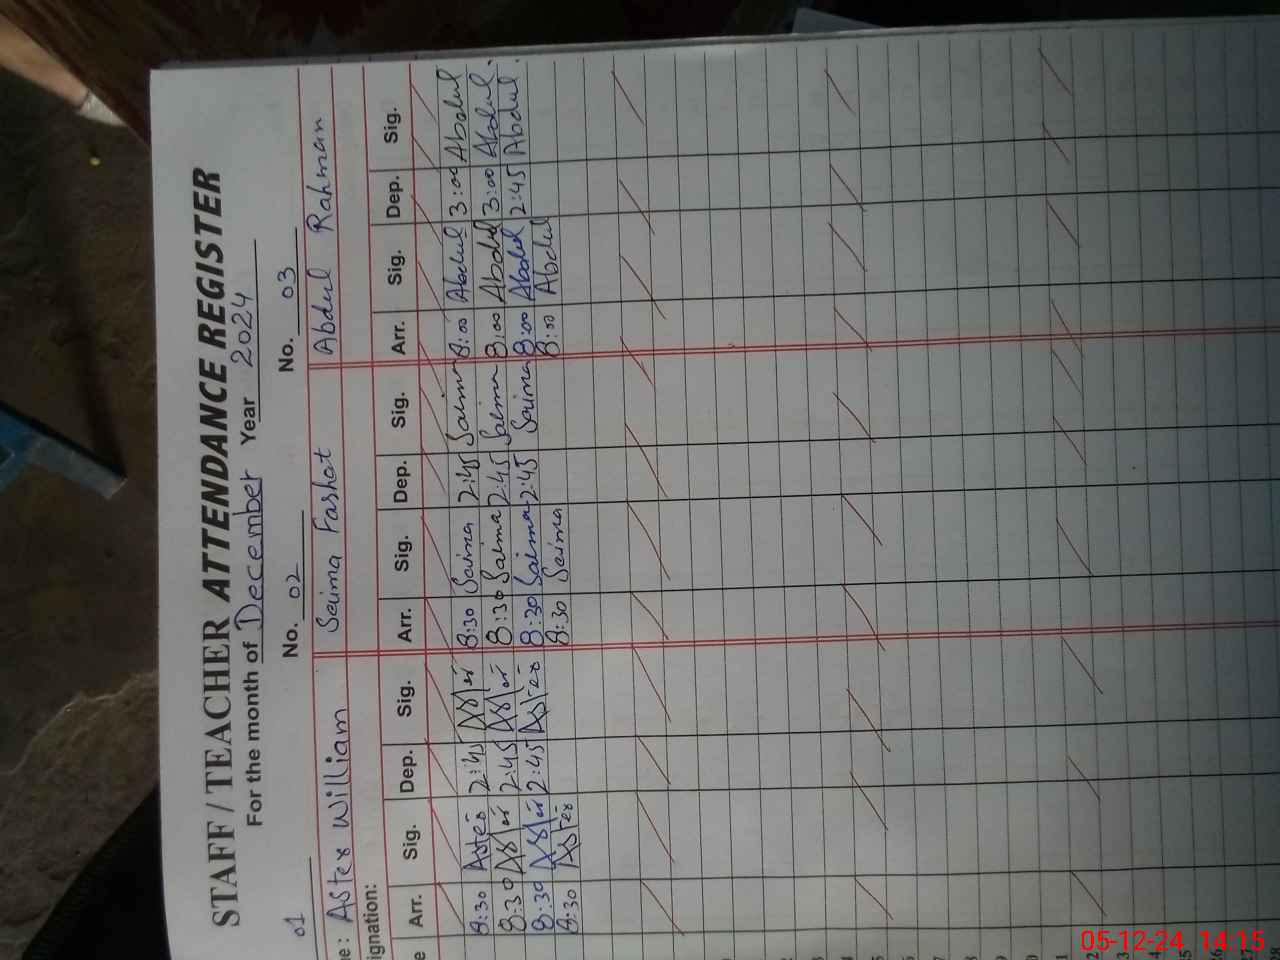 STAFF / TEACHER ATTENDANCE REGISTER
For the month of December Year 2024
01 No. 02 No. 03
me: Aster William Saima Fashat Abdul Rahman
ignation:
e Arr. Sig. Dep. Sig. Arr. Sig. Dep. Sig. Arr. Sig. Dep. Sig.
8:30 Aster 2:45 Aster 8:30 Saima 2:45 Saima 8:00 Abdul 3:00 Abdul
8:30 Aster 2:45 Aster 8:30 Saima 2:45 Saima 8:00 Abdul 3:00 Abdul.
8:30 Aster 2:45 Aster 8:30 Saima 2:45 Saima 8:00 Abdul 2:45 Abdul.
8:30 Aster 8:30 Saima 8:00 Abdul
05-12-24 14:15